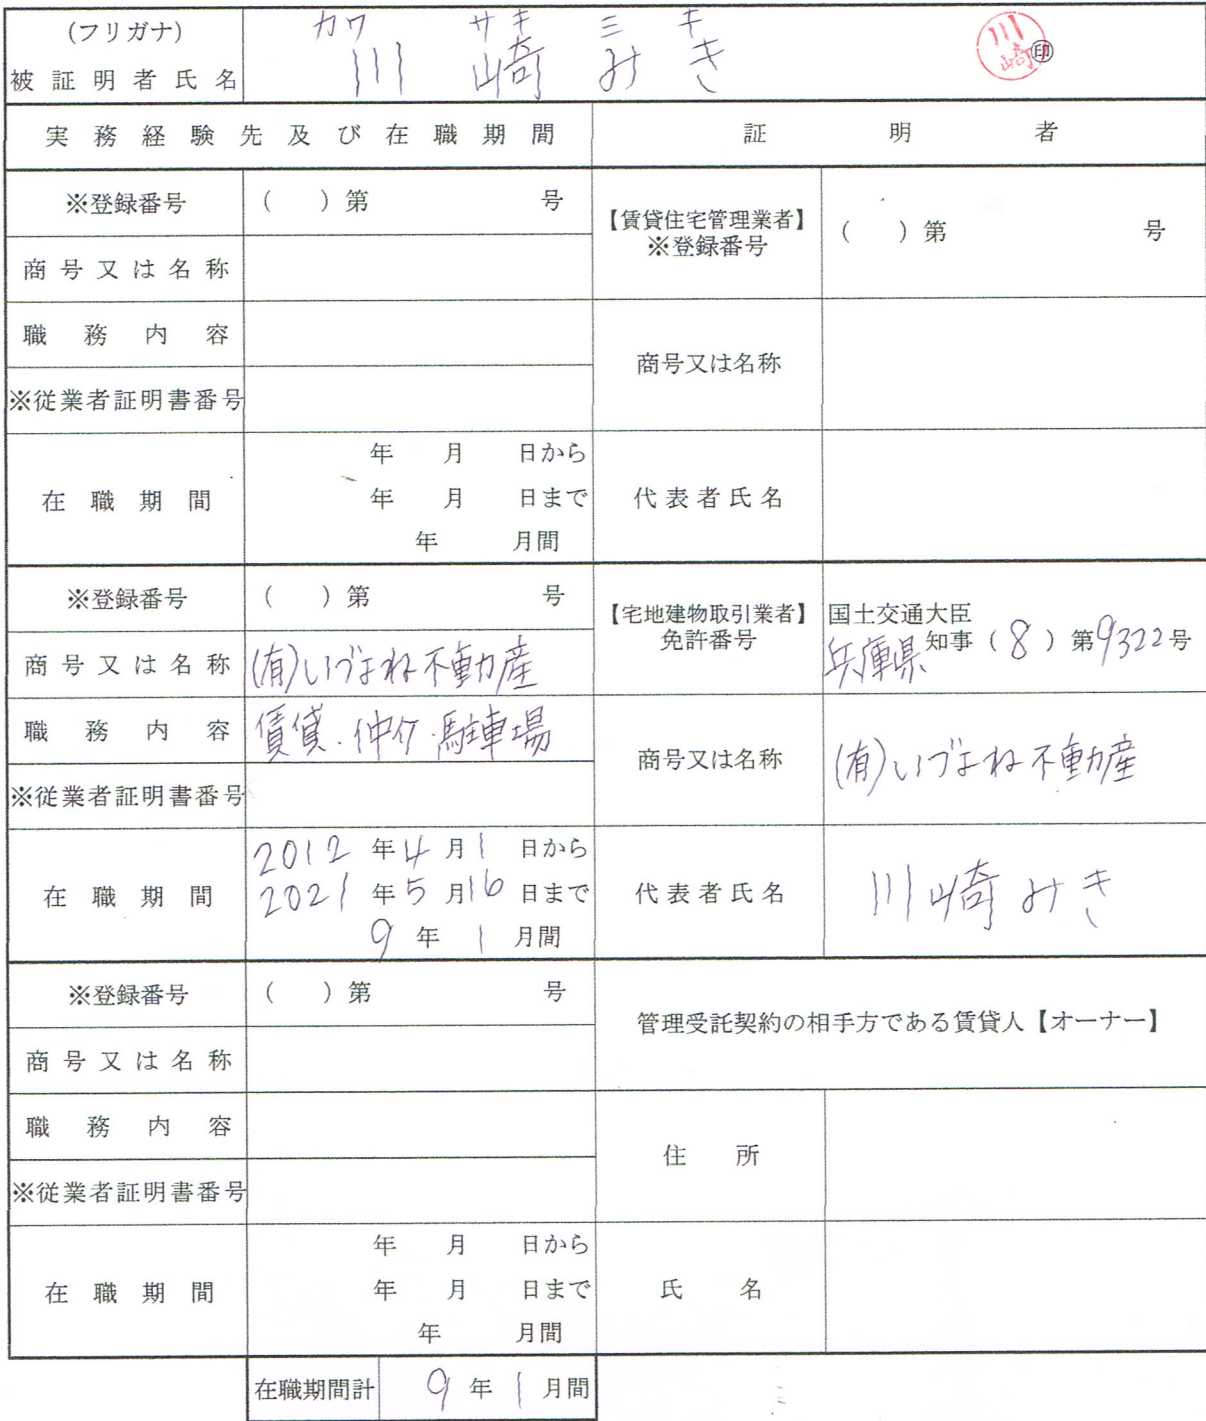 (フリガナ) カワ サキ ミキ
被証明者氏名 川崎みき 川崎 ㊞
実務経験先及び在職期間 証明者
※登録番号 ( )第 号
【賃貸住宅管理業者】
※登録番号 ( )第 号
商号又は名称
職務内容
商号又は名称
※従業者証明書番号
在職期間
年 月 日から
年 月 日まで
年 月間
代表者氏名
※登録番号 ( )第 号
【宅地建物取引業者】
免許番号
国土交通大臣
兵庫県知事(8)第9322号
商号又は名称 (有)いづよね不動産
職務内容 賃貸.仲介.駐車場
商号又は名称 (有)いづよね不動産
※従業者証明書番号
在職期間
2012年4月1日から
2021年5月16日まで
9年1月間
代表者氏名 川崎みき
※登録番号 ( )第 号
管理受託契約の相手方である賃貸人【オーナー】
商号又は名称
職務内容
住所
※従業者証明書番号
在職期間
年 月 日から
年 月 日まで
年 月間
氏名
在職期間計 9年1月間